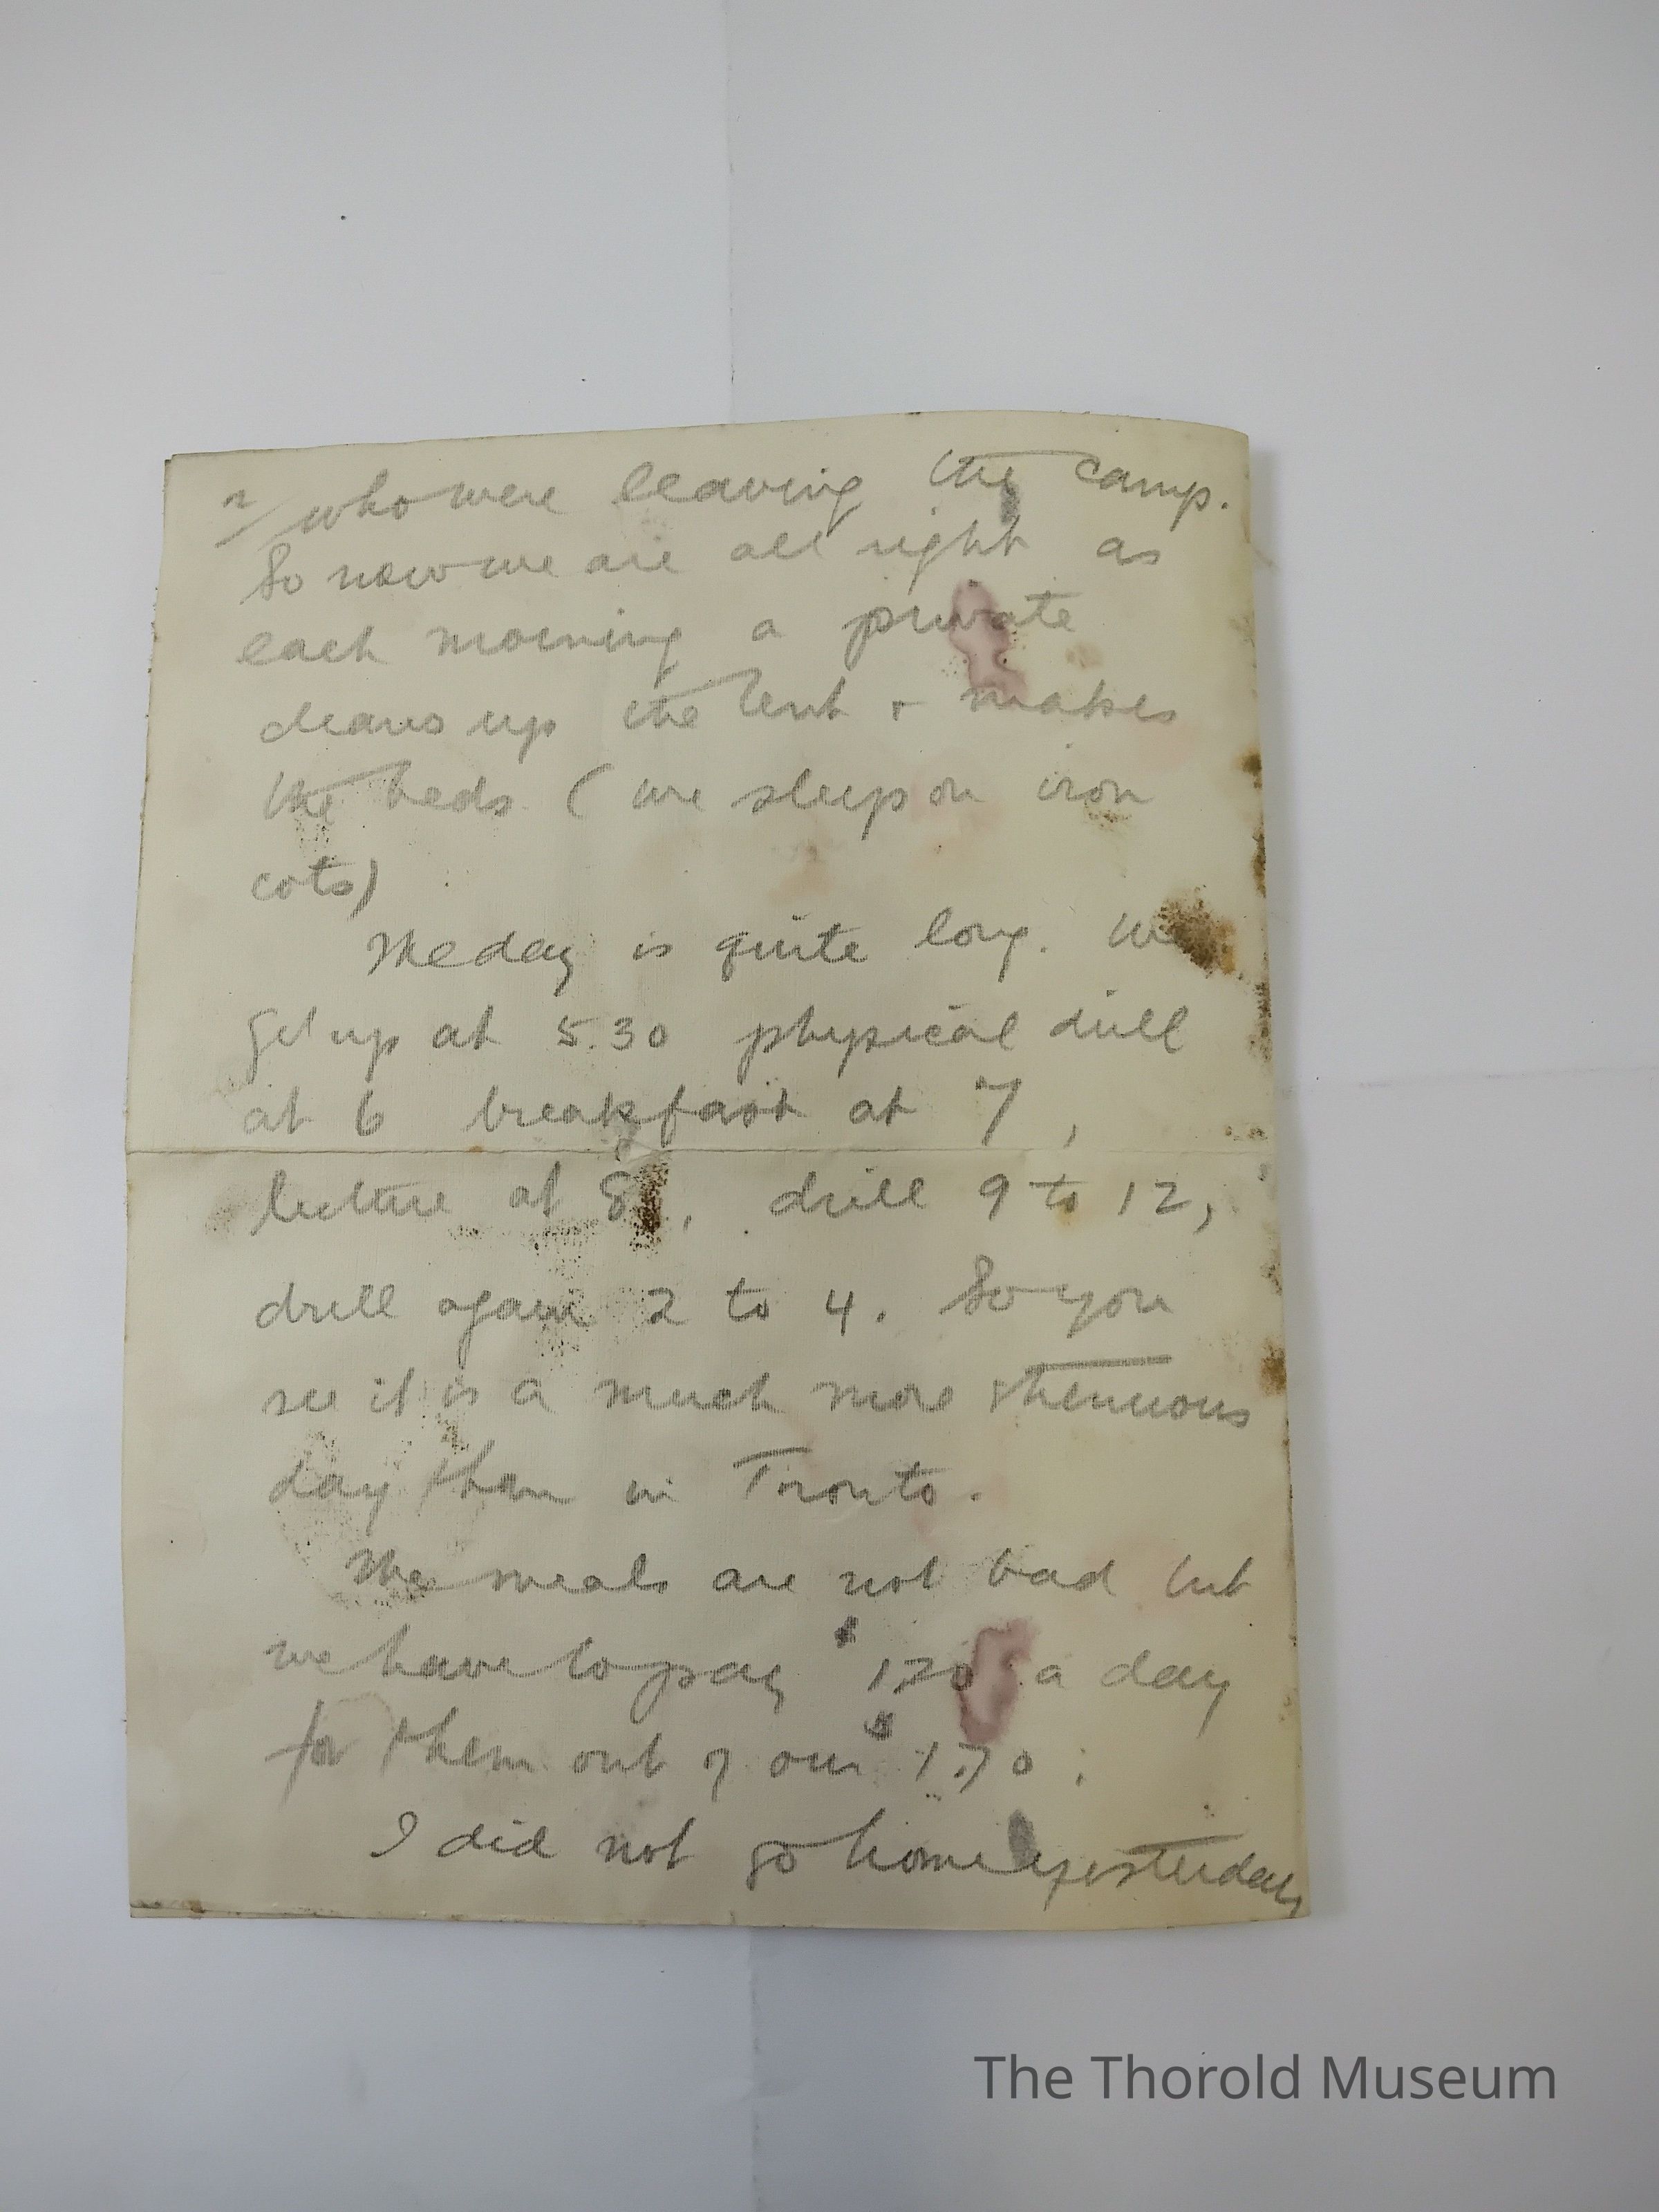 2/ who were leaving the camp.
So now we are all right as
each morning a private
cleans up the tent + makes
the beds (we sleep on iron
cots)
The day is quite long. We
get up at 5.30 physical drill
at 6 breakfast at 7,
lecture at 8, drill 9 to 12,
drill again 2 to 4. So you
see it is a much more strenuous
day than in Toronto.
The meals are not bad but
we have to pay $1.20 a day
for them out of our $1.70.
I did not go home yesterday
The Thorold Museum